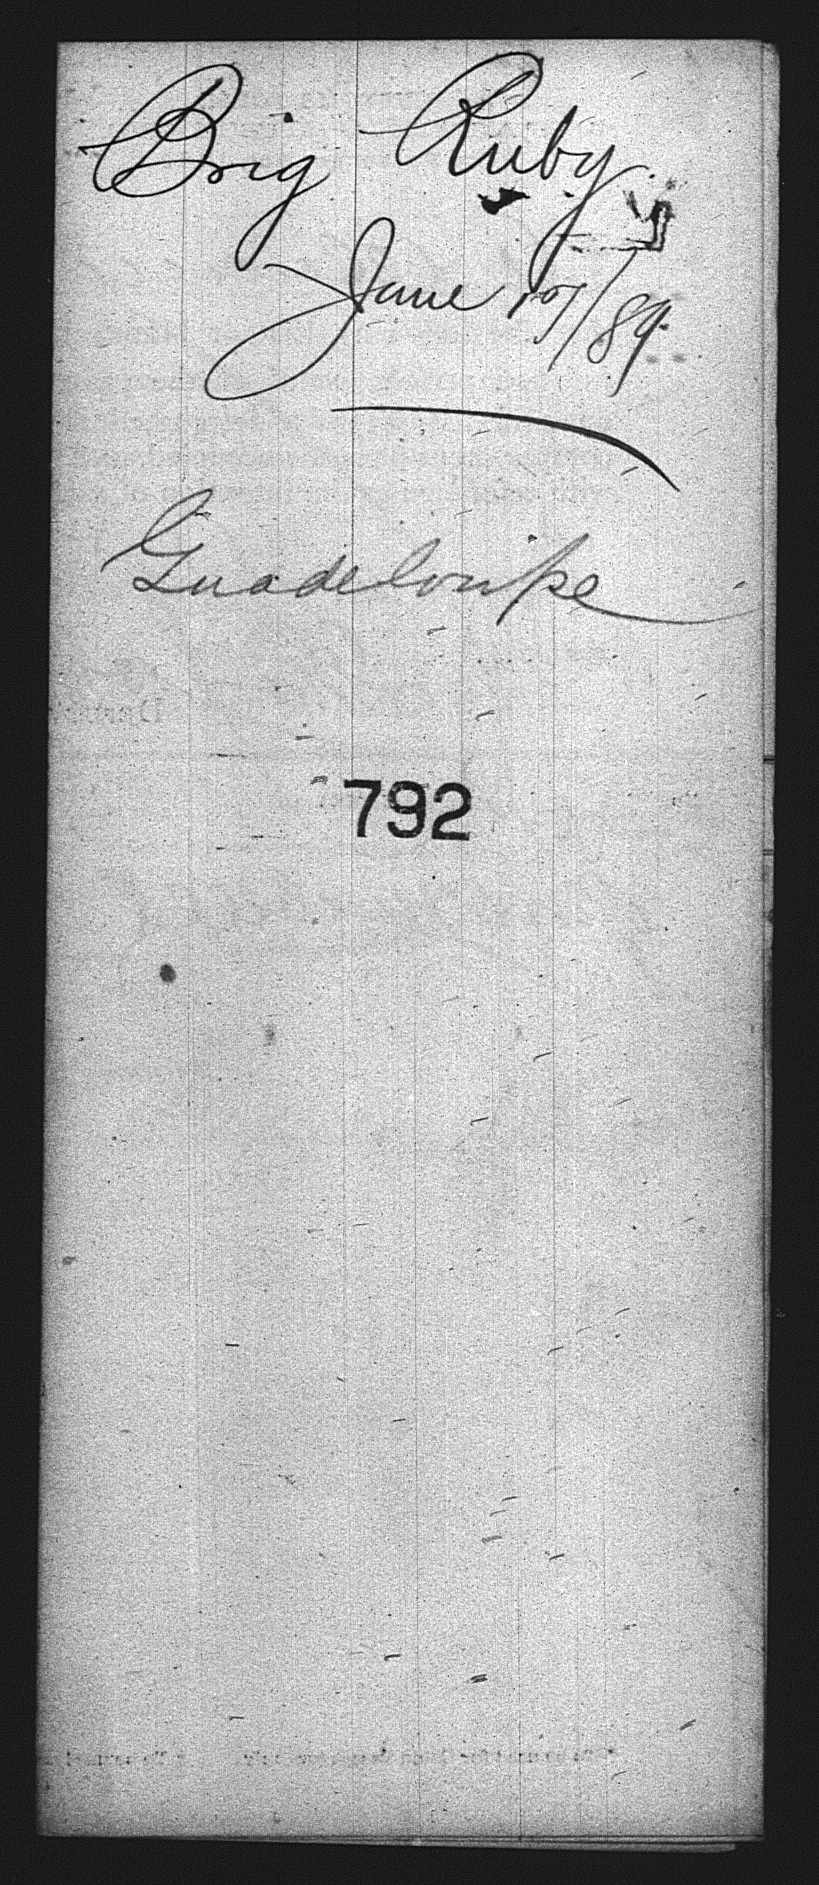 Brig Ruby
June 17/89
Guadeloupe
792